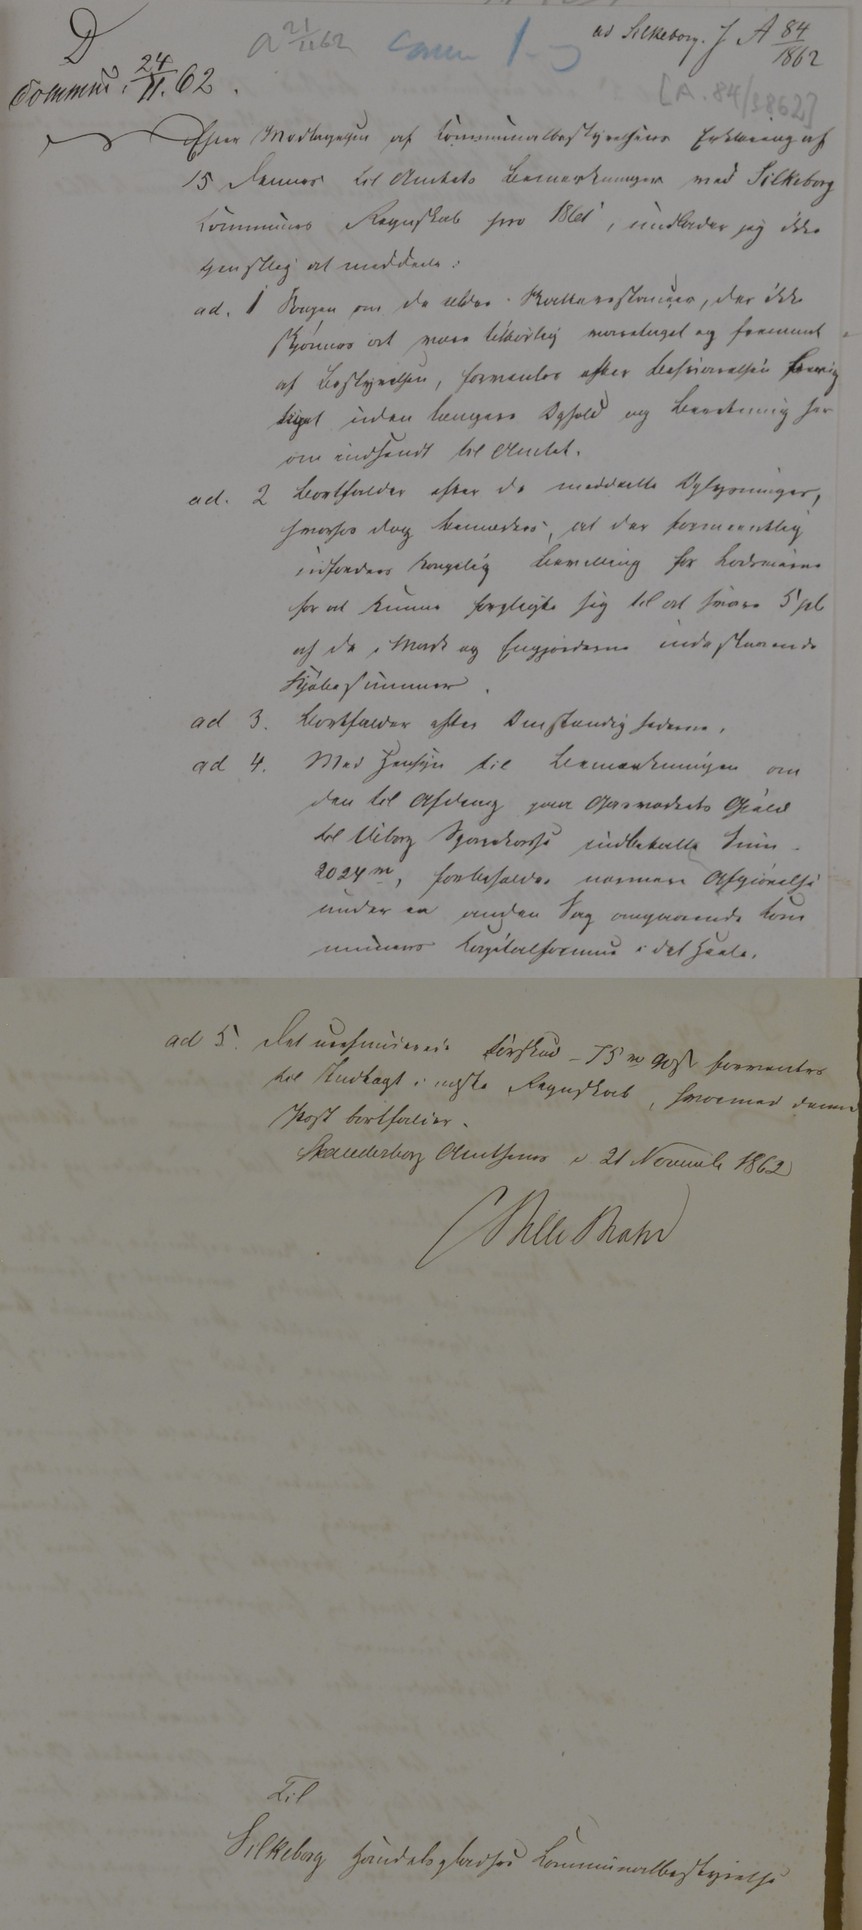 D
Commun. 24/11.62.
a 21/11 62
ad Silkeborg. J. A 84/1862
[A.84/1862]
Efter Modtagelsen af Communalbestyrelsens Erklæring af
15 dennes til Amtets Bemærkninger ved Silkeborg
Communes Regnskab pro 1861, undlader jeg ikke
tjenstlig at meddele:
ad. 1 Sagen om de ældre Skatterestancer, der ikke
skjønnes at være tilbørlig varetaget og fremmet
af Bestyrelsen, forventes efter Beskrivelsen
uden længere Ophold og Beretning her
om indsendt til Amtet.
ad. 2 Bortfalder efter de meddeelte Oplysninger,
hvorhos dog bemærkes, at der formeentlig
udfordres kongelig Bevilling for
for at kunne forpligte sig til at svare 5 pCt
af de i Mark og Engjorderne indestaaende
Kjøbesummer.
ad 3. Bortfalder efter Omstændighederne.
ad 4. Med Hensyn til Bemærkningen om
den til Afdrag paa Gasværkets Gjæld
til Viborg Sparekasse indbetalte Sum
2024 rd, forbeholdes nærmere Afgjørelse
under en anden Sag angaaende Com
munens Capitalformue i det Heele.
ad 5. Det Forskud - 75 rd forventes
til Indtægt i næste Regnskab, hvormed denne
Post bortfalder.
Skanderborg Amthuus d. 21 November 1862
Bille Brahe
Til
Silkeborg Handelsplads's Communalbestyrelse